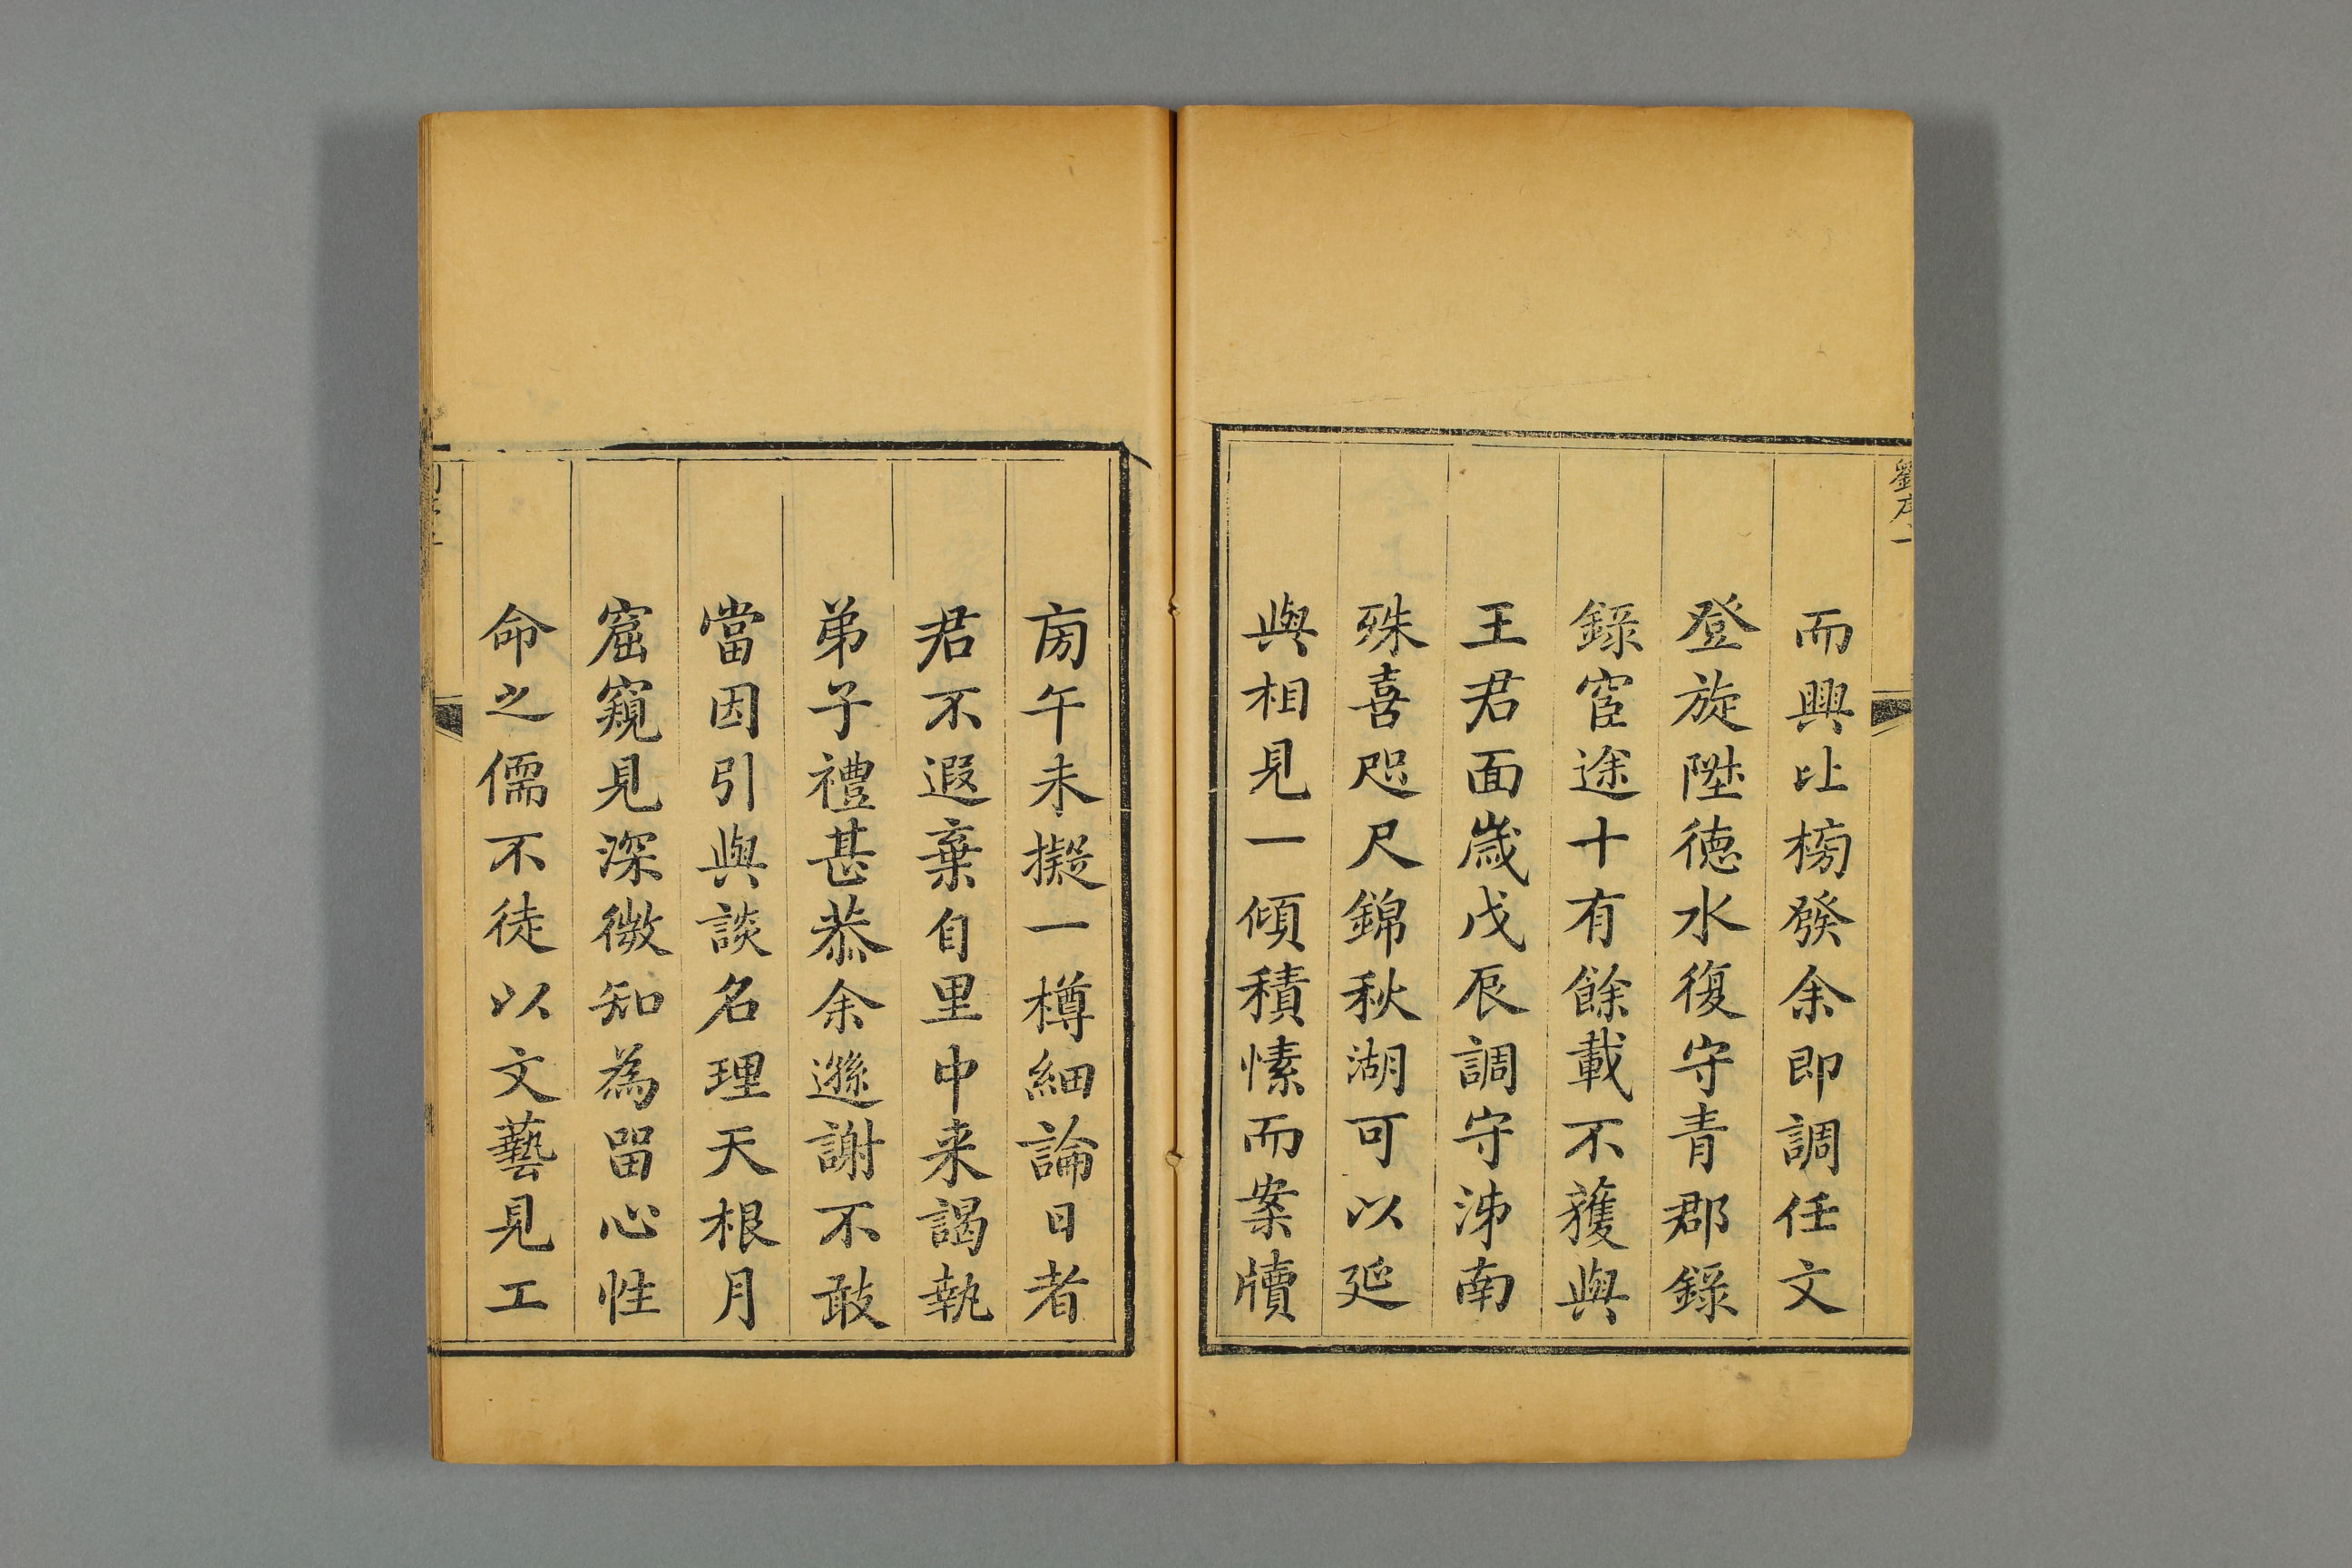 劉序一
而興比榜發余即調任文
登旋陞德水復守青郡錄
錄宦途十有餘載不獲與
王君面歲戊辰調守泲南
殊喜咫尺錦秋湖可以延
與相見一傾積愫而案牘
旁午未擬一樽細論日者
君不遐棄自里中来謁執
弟子禮甚恭余遜謝不敢
當因引與談名理天根月
窟窺見深微知為留心性
命之儒不徒以文藝見工